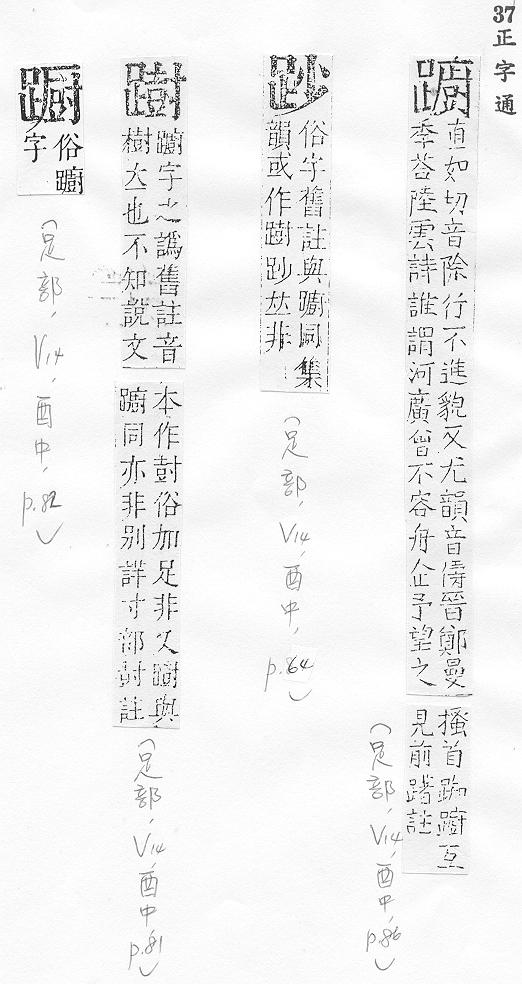 37正字通
躕
直如切音除行不進貌又尤韻音儔晉鄭曼
季荅陸雲詩誰謂河廣曾不容舟企予望之
搔首踟躕互
見前躇註
(足部,V14,酉中,p.86)
俗字舊註與躕同集
韻或作躕非
(足部,V14,酉中,p.64)
躕字之譌舊註音
樹立也不知說文
本作尌俗加足非又與
躕同亦非別詳寸部尌註
(足部,V14,酉中,p.81)
俗躕
字
(足部,V14,酉中,p.82)